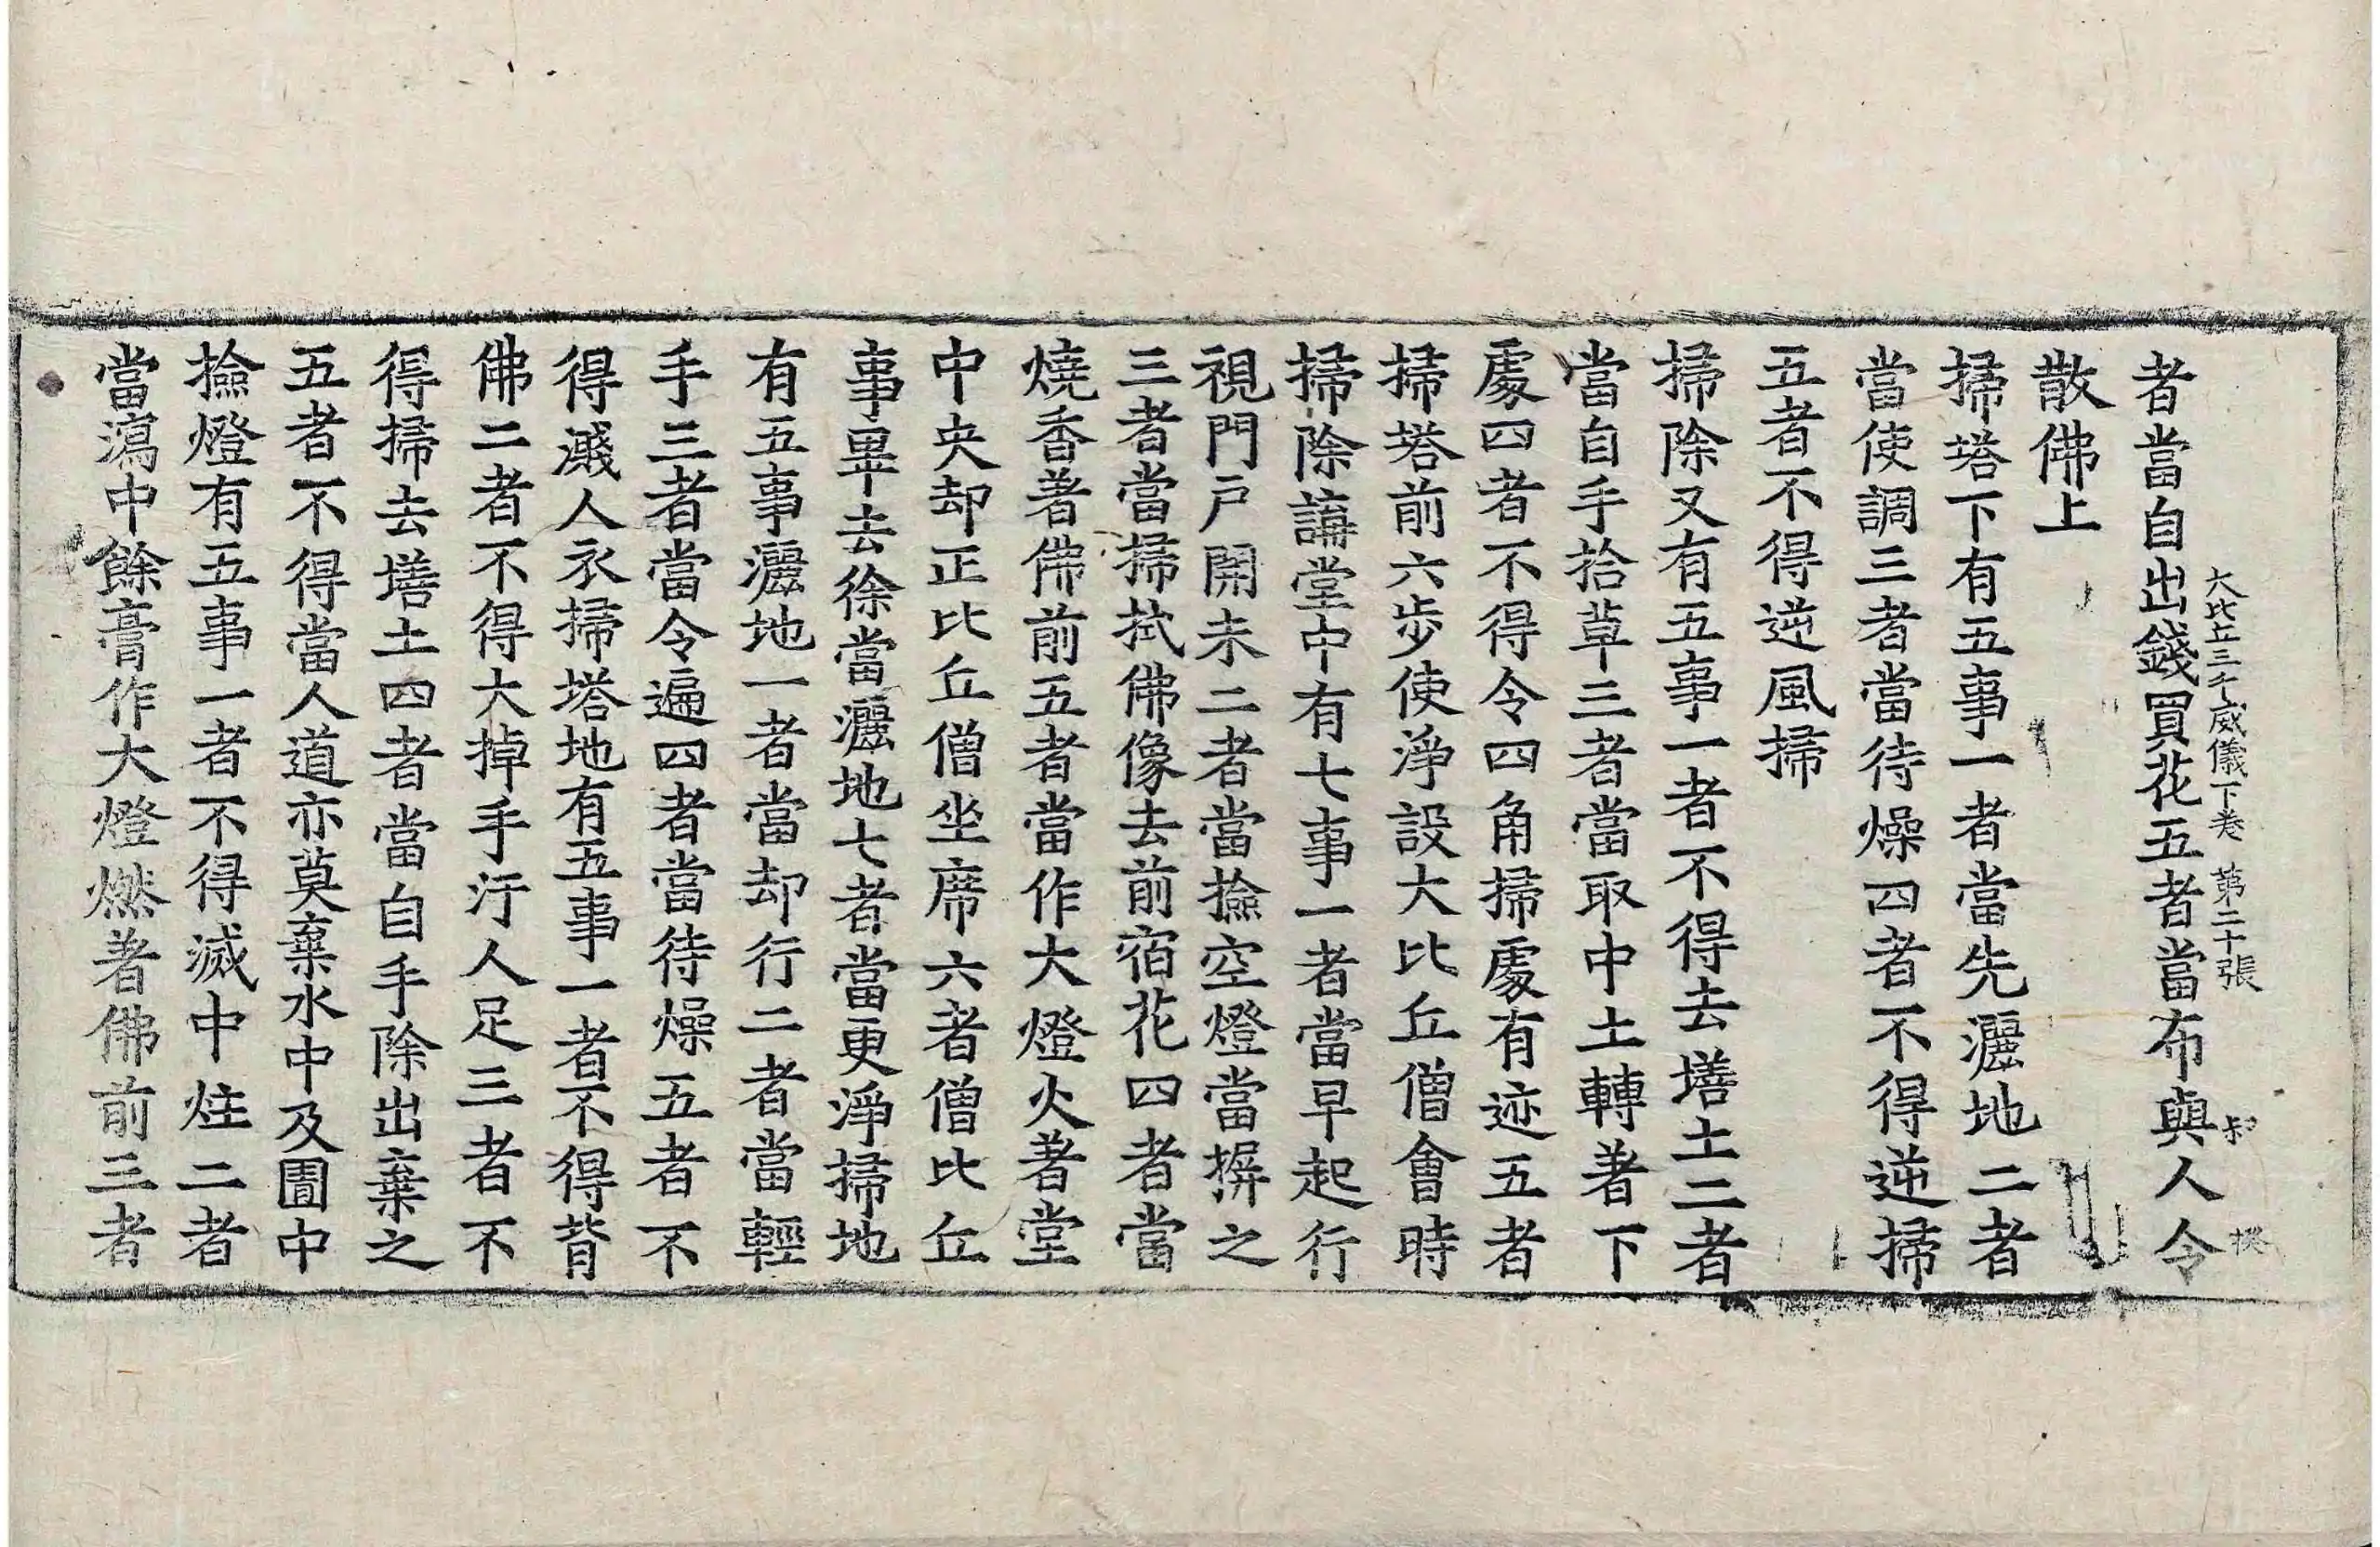 大比丘三千威儀下卷 第二十張
者當自出錢買花五者當布與人令
散佛上
掃塔下有五事一者當先灑地二者
當使調三者當待燥四者不得逆掃
五者不得逆風掃
掃除又有五事一者不得去墡土二者
當自手拾草三者當取中土轉著下
處四者不得令四角掃處有迹五者
掃塔前六步使淨設大比丘僧會時
掃除講堂中有七事一者當早起行
視門戶開未二者當撿空燈當摒之
三者當掃拭佛像去前宿花四者當
燒香著佛前五者當作大燈火著堂
中央却正比丘僧坐席六者僧比丘
事畢去徐當灑地七者當更淨掃地
有五事灑地一者當却行二者當輕
手三者當令遍四者當待燥五者不
得濺人衣掃塔地有五事一者不得背
佛二者不得大掉手汙人足三者不
得掃去墡土四者當自手除出棄之
五者不得當人道亦莫棄水中及圊中
撿燈有五事一者不得滅中炷二者
當瀉中餘膏作大燈燃著佛前三者